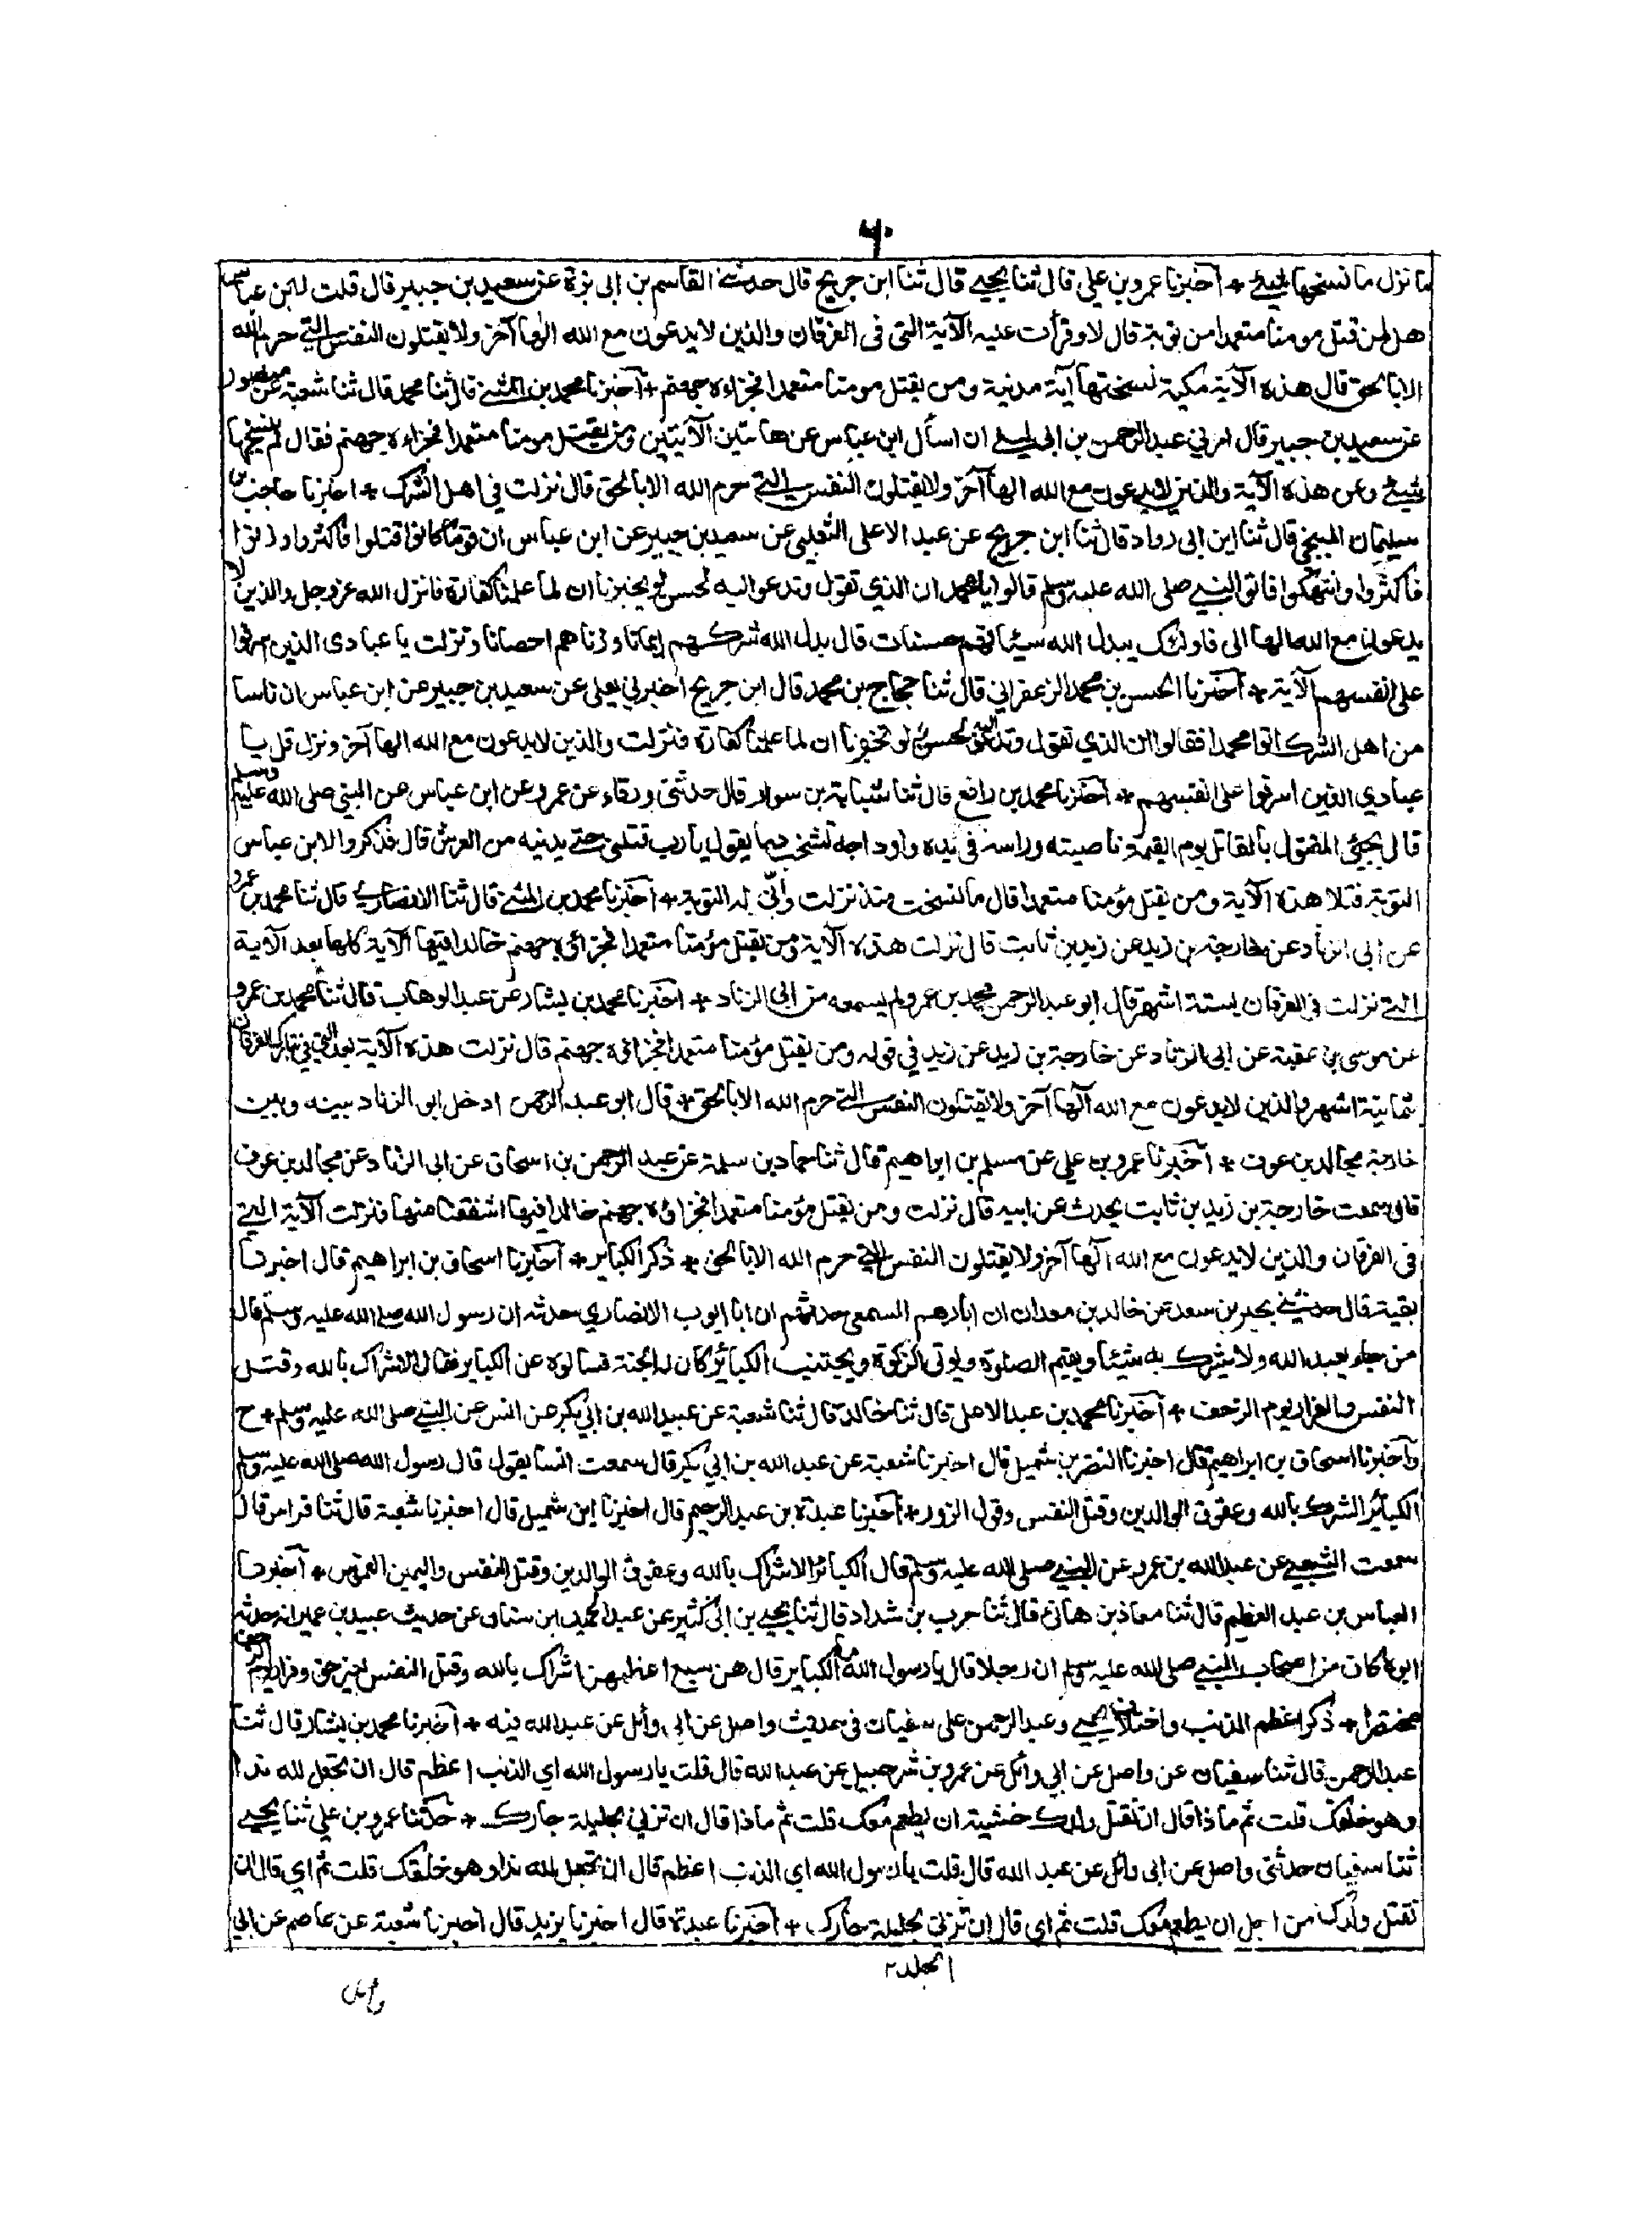 ٦٠
ما نزل ما نسخها شيئ + أخبرنا عمرو بن علي قال ثنا يحيى قال ثنا ابن جريج قال حدثني القاسم بن ابى بزة عن سعيد بن جبير قال قلت لابن عباس
هل لمن قتل مومنا متعمدا من توبة قال لا وقرأت عليه الآية التى فى الفرقان والذين لا يدعون مع الله الها آخر ولا يقتلون النفس التي حرم الله
الا بالحق قال هذه الآية مكية نسختها آية مدنية ومن يقتل مومنا متعمدا فجزاءه جهنم + أخبرنا محمد بن المثنى قال ثنا محمد قال ثنا شعبة عن منصور
عن سعيد بن جبير قال امرني عبد الرحمن بن ابى ليلى ان اسأل ابن عباس عن هاتين الآيتين ومن يقتل مومنا متعمدا فجزاءه جهنم فقال لم ينسخها
شيئ وعن هذه الآية والذين لا يدعون مع الله الها آخر ولا يقتلون النفس التي حرم الله الا بالحق قال نزلت في اهل الشرك + اخبرنا حاجب بن
سليمان المنبجي قال ثنا ابن ابى رواد قال ثنا ابن جريج عن عبد الاعلى الثعلبي عن سعيد بن جبير عن ابن عباس ان قوما كانوا قتلوا فاكثروا وزنوا
فاكثروا وانتهكوا فاتوا النبي صلى الله عليه وسلم قالوا يا محمد ان الذي تقول وتدعو اليه لحسن لو يخبرنا ان لما علمنا كفارة فانزل الله عز وجل والذين لا
يدعون مع الله الها الى فاولئك يبدل الله سيئاتهم حسنات قال يبدل الله شركهم إيمانا وزناهم احصانا ونزلت يا عبادى الذين اسرفوا
على انفسهم الآية + أخبرنا الحسن بن محمد الزعفراني قال ثنا حجاج بن محمد قال ابن جريج اخبرني يعلى عن سعيد بن جبير عن ابن عباس ان ناسا
من اهل الشرك اتوا محمدا فقالوا ان الذي تقول وتدعو اليه لحسن لو تخبرنا ان لما عملنا كفارة فنزلت والذين لا يدعون مع الله الها آخر ونزل قل يا
عبادي الذين اسرفوا على انفسهم + أخبرنا محمد بن رافع قال ثنا شبابة بن سوار قال حدثنى ورقاء عن عمرو عن ابن عباس عن النبي صلى الله عليه وسلم
قال يجيئ المقتول بالقاتل يوم القيمة وناصيته وراسه فى يده واوداجه تشخب دما يقول يا رب قتلني حتى يدنيه من العرش قال فذكروا لابن عباس
التوبة فتلا هذه الآية ومن يقتل مؤمنا متعمدا قال ما نسخت منذ نزلت وأنّى له التوبة + أخبرنا محمد بن المثنى قال ثنا الانصاري قال ثنا محمد بن عمرو
عن ابى الزناد عن خارجة بن زيد عن زيد بن ثابت قال نزلت هذه الآية ومن يقتل مؤمنا متعمدا فجزاؤه جهنم خالدا فيها الآية كلها بعد الآية
التي نزلت فى الفرقان بستة اشهر قال ابو عبد الرحمن محمد بن عمرو لم يسمعه من ابى الزناد + اخبرنا محمد بن بشار عن عبد الوهاب قال ثنا محمد بن عمرو
عن موسى بن عقبة عن ابى الزناد عن خارجة بن زيد عن زيد في قوله ومن يقتل مؤمنا متعمدا فجزاؤه جهنم قال نزلت هذه الآية بعد التي في تبارك الفرقان
بثمانية اشهر والذين لا يدعون مع الله آلها آخر ولا يقتلون النفس التي حرم الله الا بالحق + قال ابو عبد الرحمن ادخل ابو الزناد بينه وبين
خارجة مجالد بن عوف + أخبرنا عمرو بن علي عن مسلم بن ابراهيم قال ثنا حماد بن سلمة عن عبد الرحمن بن اسحاق عن ابى الزناد عن مجالد بن عوف
قال سمعت خارجة بن زيد بن ثابت يحدث عن ابيه قال نزلت ومن يقتل مؤمنا متعمدا فجزاؤه جهنم خالدا فيها اشفقنا منها فنزلت الآية التي
فى الفرقان والذين لا يدعون مع الله آلها آخر ولا يقتلون النفس التي حرم الله الا بالحق + ذكر الكباير + أخبرنا اسحاق بن ابراهيم قال اخبرنا
بقية قال حدثني بحير بن سعد عن خالد بن معدان ان ابا رهم السمعي حدثهم ان ابا ايوب الانصاري حدثه ان رسول الله صلى الله عليه وسلم قال
من جاء يعبد الله ولا يشرك به شيئا ويقيم الصلوة ويؤتى الزكوة ويجتنب الكبائر كان له الجنة فسالوه عن الكباير فقال الاشراك بالله وقتل
النفس والفرار يوم الزحف + أخبرنا محمد بن عبد الاعلى قال ثنا خالد قال ثنا شعبة عن عبيد الله بن ابي بكر عن انس عن النبي صلى الله عليه وسلم + ح
وأخبرنا اسحاق بن ابراهيم قال اخبرنا النضر بن شميل قال اخبرنا شعبة عن عبد الله بن ابي بكر قال سمعت انسا يقول قال رسول الله صلى الله عليه وسلم
الكبائر الشرك بالله وعقوق الوالدين وقتل النفس وقول الزور + أخبرنا عبدة بن عبد الرحيم قال اخبرنا ابن شميل قال اخبرنا شعبة قال ثنا فراس قال
سمعت الشعبي عن عبد الله بن عمرو عن النبي صلى الله عليه وسلم قال الكبائر الاشراك بالله وعقوق الوالدين وقتل النفس واليمين الغموس + أخبرنا
العباس بن عبد العظيم قال ثنا معاذ بن هانئ قال ثنا حرب بن شداد قال ثنا يحيى بن ابى كثير عن عبد الحميد ابن سنان عن حديث عبيد بن عمير انه حدثه
ابوه كان من اصحاب النبي صلى الله عليه وسلم ان رجلا قال يا رسول الله ما الكباير قال هن سبع اعظمهن اشراك بالله وقتل النفس بغير حق وفرار يوم الزحف
مختصر + ذكر اعظم الذنب واختلاف يحيى وعبد الرحمن على سفيان في حديث واصل عن ابى وائل عن عبد الله فيه + أخبرنا محمد بن بشار قال ثنا
عبد الرحمن قال ثنا سفيان عن واصل عن ابي وائل عن عمرو بن شرحبيل عن عبد الله قال قلت يا رسول الله اي الذنب اعظم قال ان تجعل لله ندا
وهو خلقك قلت ثم ماذا قال ان تقتل ولدك خشية ان يطعم معك قلت ثم ماذا قال ان تزني بحليلة جارك + حدثنا عمرو بن علي ثنا يحيى
ثنا سفيان حدثنى واصل عن ابى وائل عن عبد الله قال قلت يا رسول الله اي الذنب اعظم قال ان تجعل لله ندا وهو خلقك قلت ثم اي قال ان
تقتل ولدك من اجل ان يطعم معك قلت ثم اي قال ان تزني بحليلة جارك + أخبرنا عبدة قال اخبرنا يزيد قال اخبرنا شعبة عن عاصم عن ابي
المجلد ٢
وائل